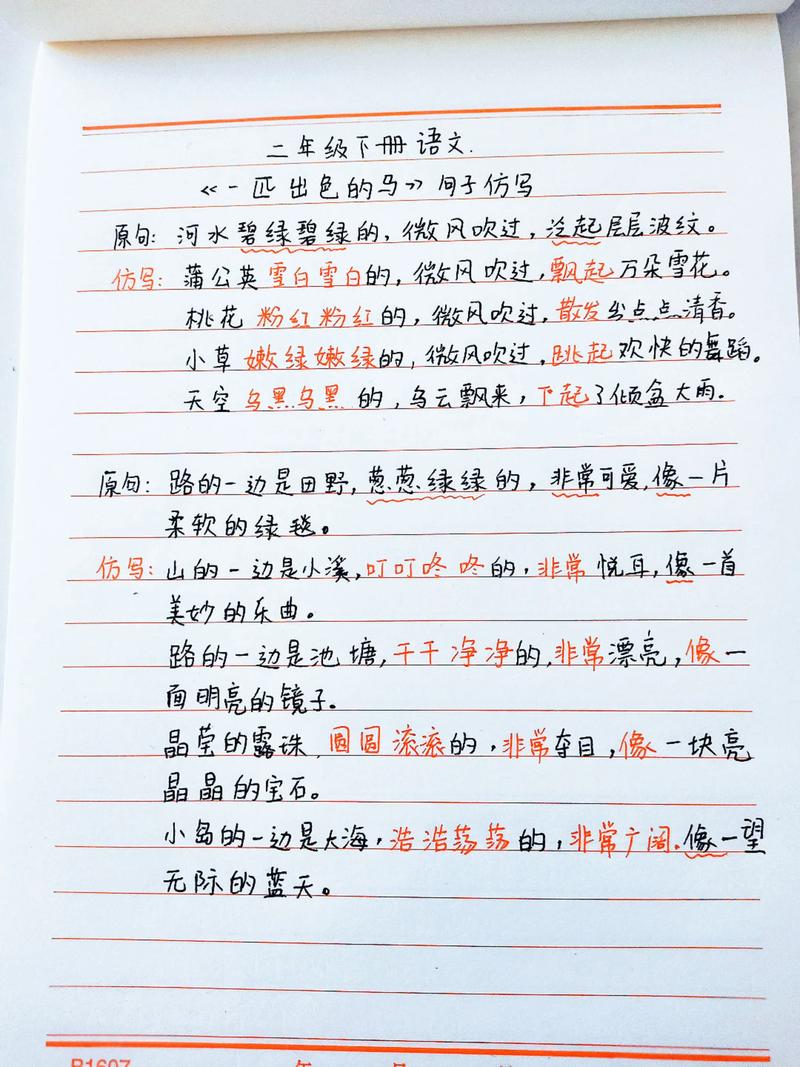 二年级下册语文.
《一匹出色的马》句子仿写
原句: 河水碧绿碧绿的, 微风吹过, 泛起层层波纹。
仿写: 蒲公英雪白雪白的, 微风吹过, 飘起万朵雪花。
桃花粉红粉红的, 微风吹过, 散发出点点清香。
小草嫩绿嫩绿的, 微风吹过, 跳起欢快的舞蹈。
天空乌黑乌黑的, 乌云飘来, 下起了倾盆大雨.
原句: 路的一边是田野, 葱葱绿绿的, 非常可爱, 像一片
柔软的绿毯。
仿写: 山的一边是小溪, 叮叮咚咚的, 非常悦耳, 像一首
美妙的乐曲。
路的一边是池塘, 干干净净的, 非常漂亮, 像一
面明亮的镜子.
晶莹的露珠, 圆圆滚滚的, 非常夺目, 像一块亮
晶晶的宝石。
小岛的一边是大海, 浩浩荡荡的, 非常广阔. 像一望
无际的蓝天。